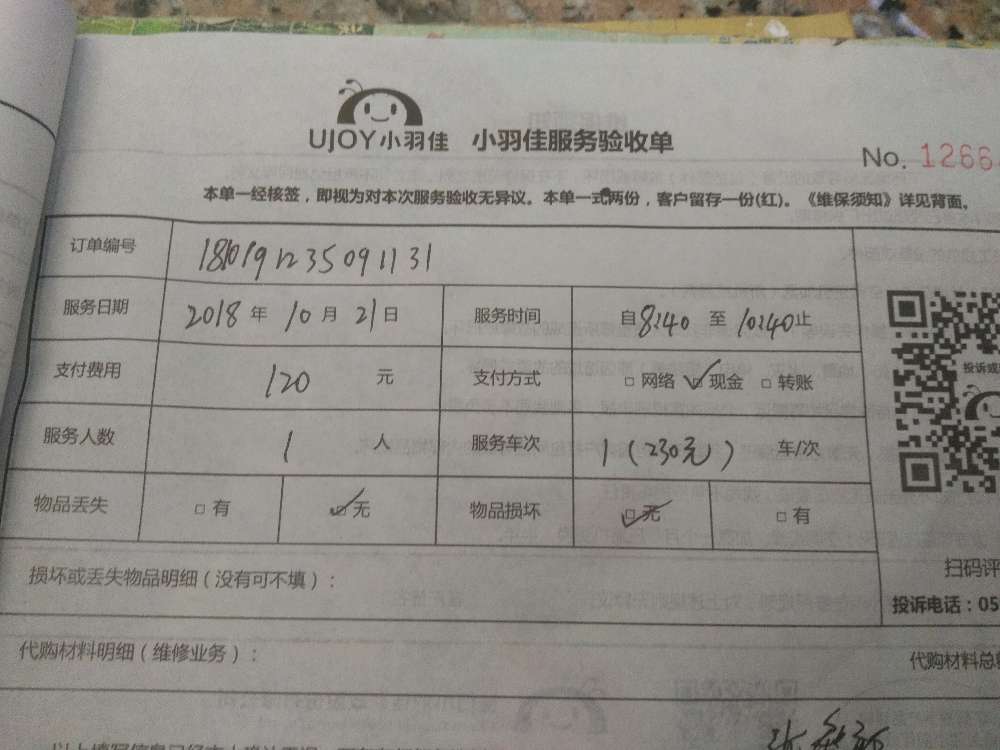 UJOY小羽佳 小羽佳服务验收单
No. 1266
本单一经核签，即视为对本次服务验收无异议。本单一式两份，客户留存一份(红)。《维保须知》详见背面。
订单编号 181019123509 1131
服务日期 2018 年 10 月 21 日 服务时间 自 8:40 至 10:40 止
支付费用 120 元 支付方式 □ 网络 ☑ 现金 □ 转账
投诉或
服务人数 1 人 服务车次 1（230元） 车/次
物品丢失 □ 有 ☑ 无 物品损坏 ☑ 无 □ 有
扫码评
损坏或丢失物品明细（没有可不填）：
投诉电话：05
代购材料明细（维修业务）：
代购材料总